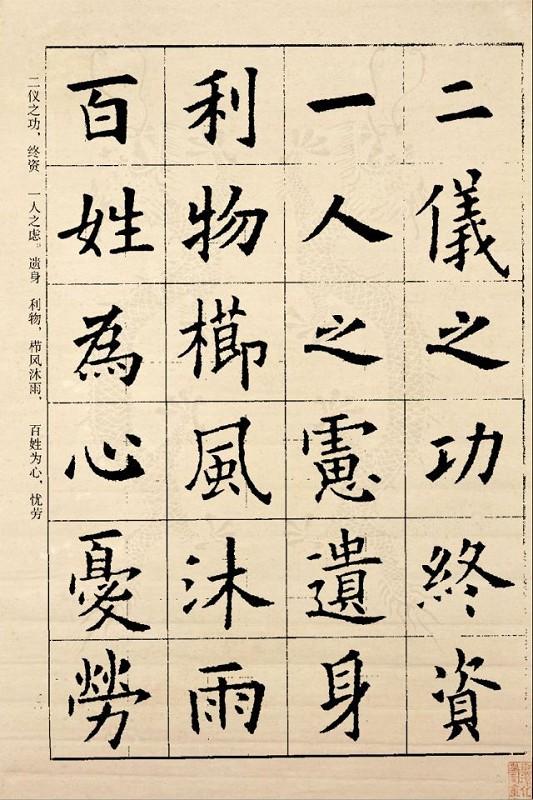 二儀之功終資
一人之慮遺身
利物櫛風沐雨
百姓為心憂勞
二仪之功，终资 一人之虑。遗身 利物，栉风沐雨， 百姓为心，忧劳